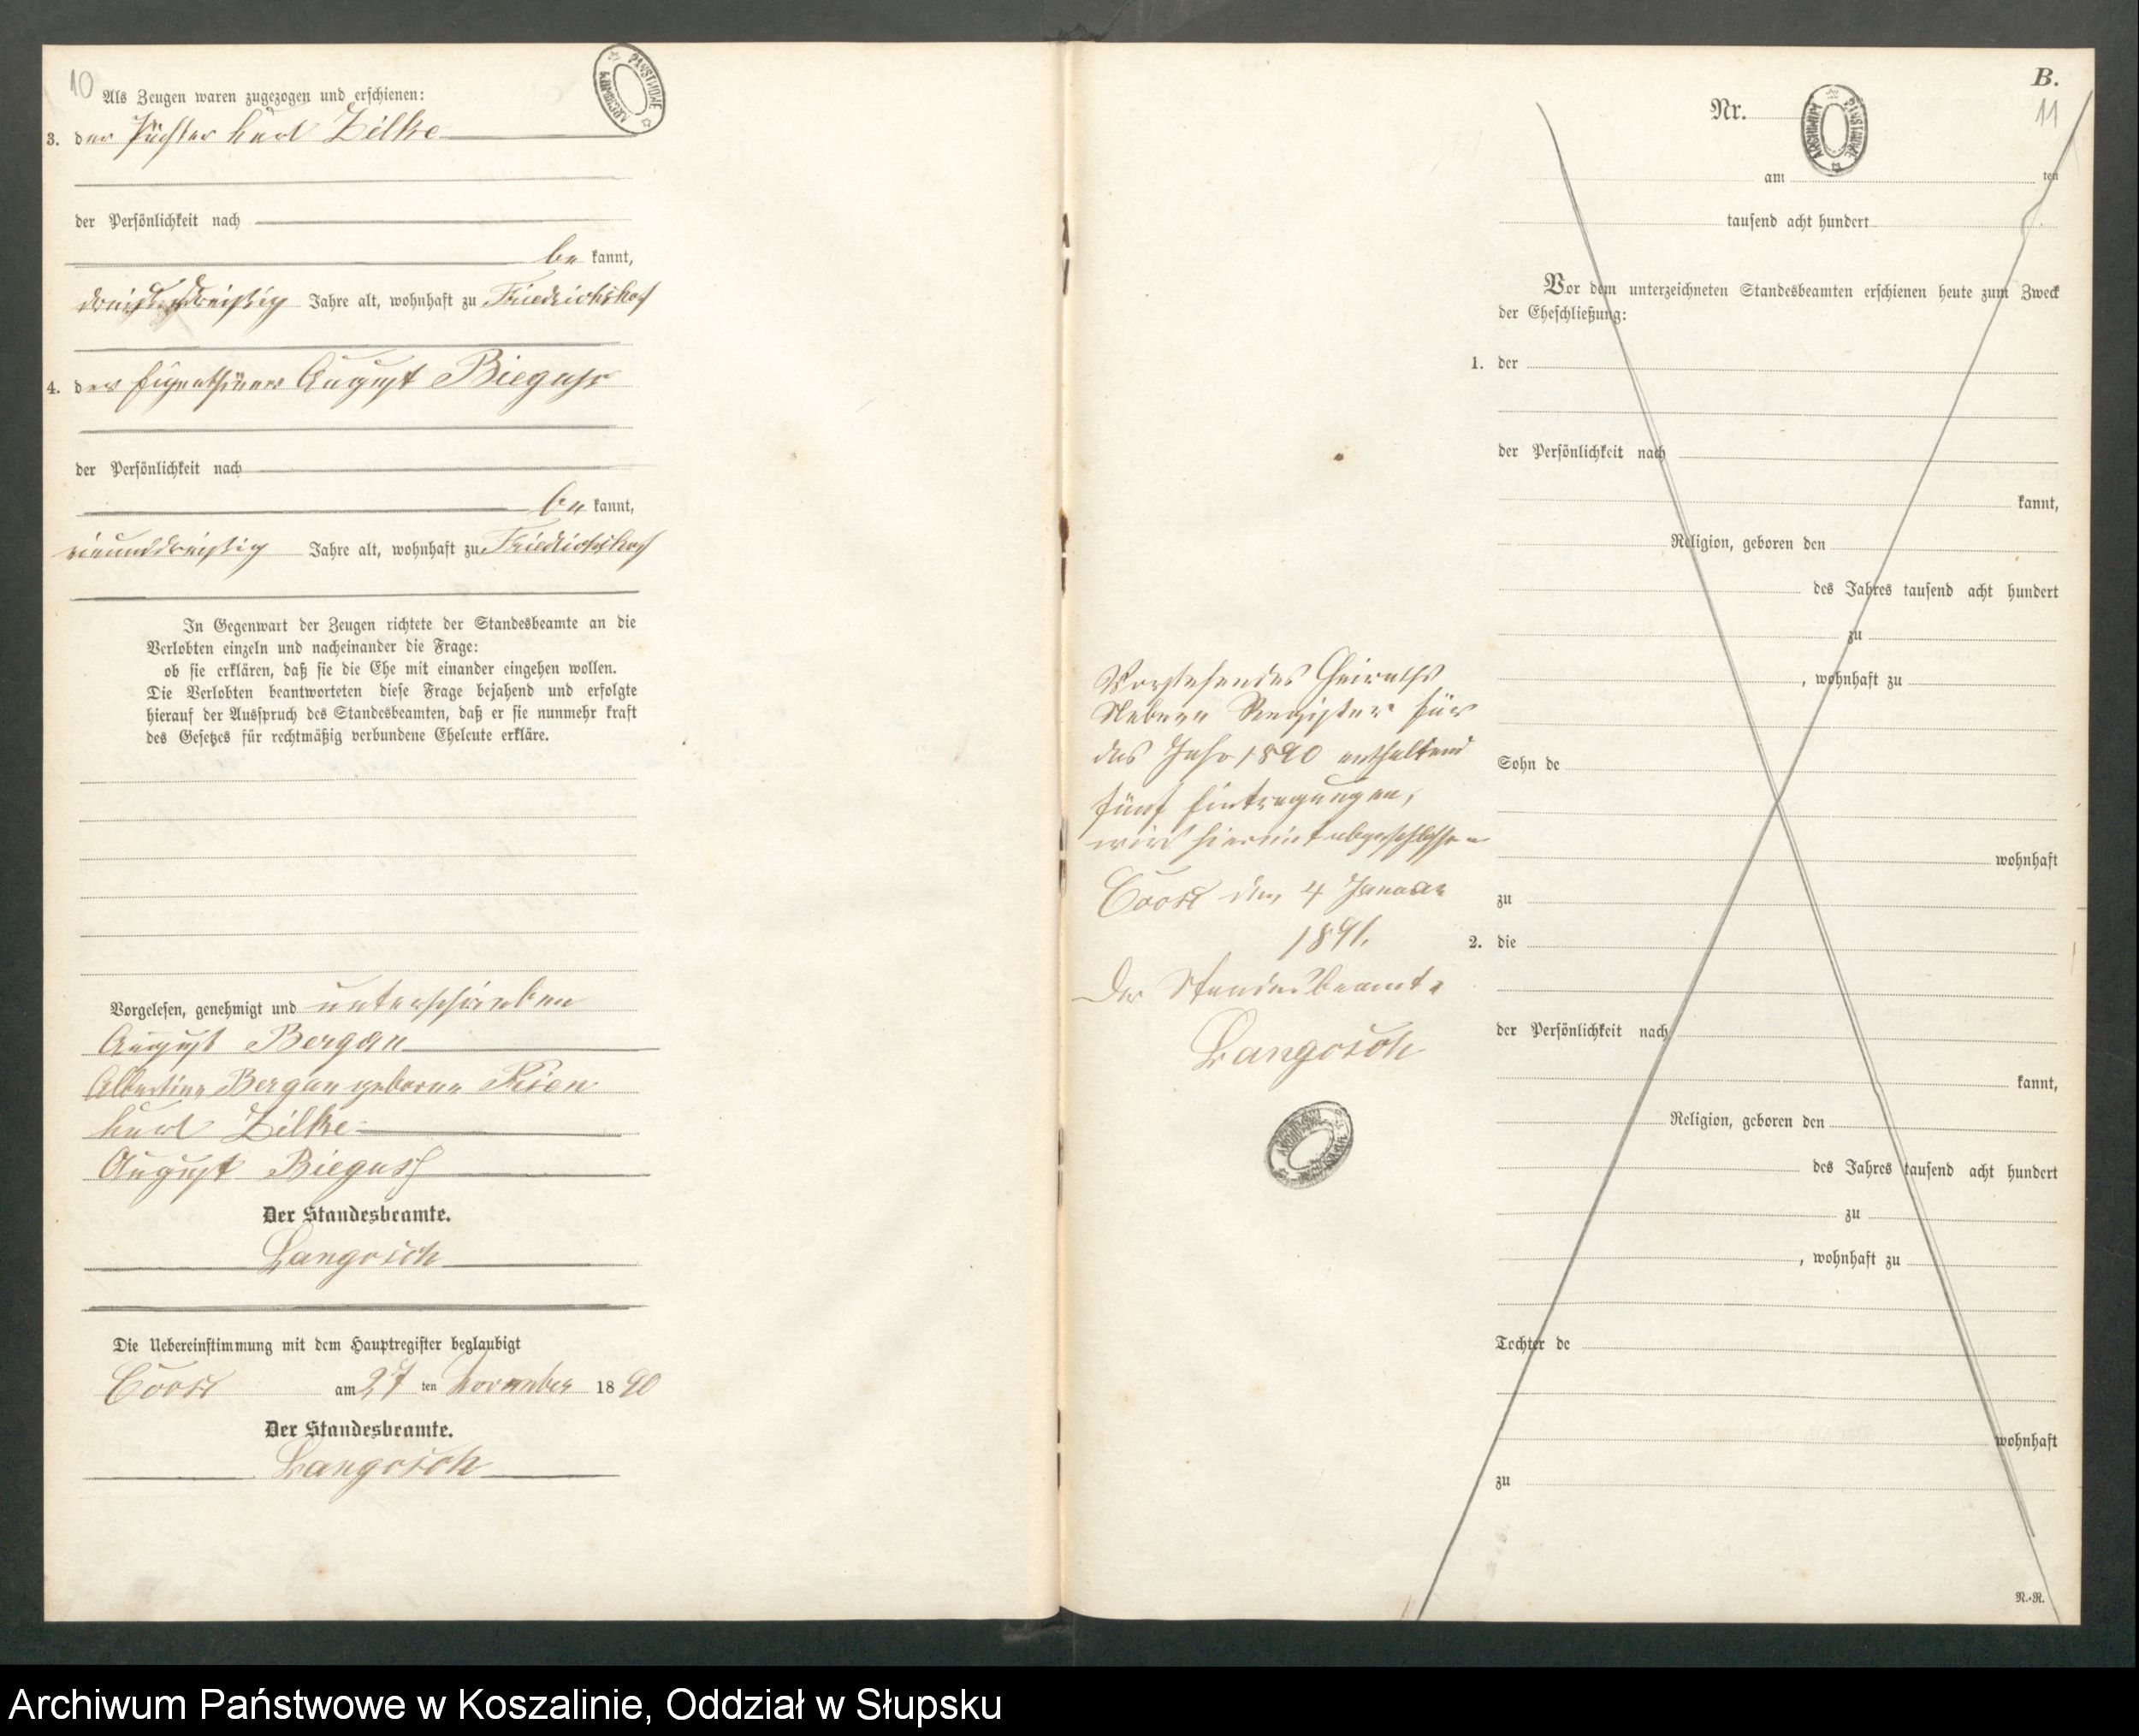 10
Als Zeugen waren zugezogen und erschienen:
3. der Pächter Karl Zilke
der Persönlichkeit nach
be kannt,
dreiunddreißig Jahre alt, wohnhaft zu Friedrichshof
4. der Eigenthümer August Bieguss
der Persönlichkeit nach
be kannt,
Jahre alt, wohnhaft zu Friedrichshof
In Gegenwart der Zeugen richtete der Standesbeamte an die
Verlobten einzeln und nacheinander die Frage:
ob sie erklären, daß sie die Ehe mit einander eingehen wollen.
Die Verlobten beantworteten diese Frage bejahend und erfolgte
hierauf der Ausspruch des Standesbeamten, daß er sie nunmehr kraft
des Gesetzes für rechtmäßig verbundene Eheleute erkläre.
Vorgelesen, genehmigt und unterschrieben
August Bergan
Albertine Bergan geborene
Karl Zilke
August Bieguss
Der Standesbeamte.
Langosch
Die Uebereinstimmung mit dem Hauptregister beglaubigt
am 27 ten November 18 90
Der Standesbeamte.
Langosch
Vorstehendes Heiraths
Neben Register für
das Jahr 1890 enthaltend
fünf Eintragungen,
wird hiermit abgeschlossen
den 4 Januar
1891.
Der Standesbeamte
Langosch
B.
11
Nr.
am ten
tausend acht hundert
Vor dem unterzeichneten Standesbeamten erschienen heute zum Zweck
der Eheschließung:
1. der
der Persönlichkeit nach
kannt,
Religion, geboren den
des Jahres tausend acht hundert
zu
, wohnhaft zu
Sohn de
wohnhaft
zu
2. die
der Persönlichkeit nach
kannt,
Religion, geboren den
des Jahres tausend acht hundert
zu
, wohnhaft zu
Tochter de
wohnhaft
zu
N.-R.
ARCHIWUM PAŃSTWOWE
ARCHIWUM PAŃSTWOWE
Archiwum Państwowe w Koszalinie, Oddział w Słupsku